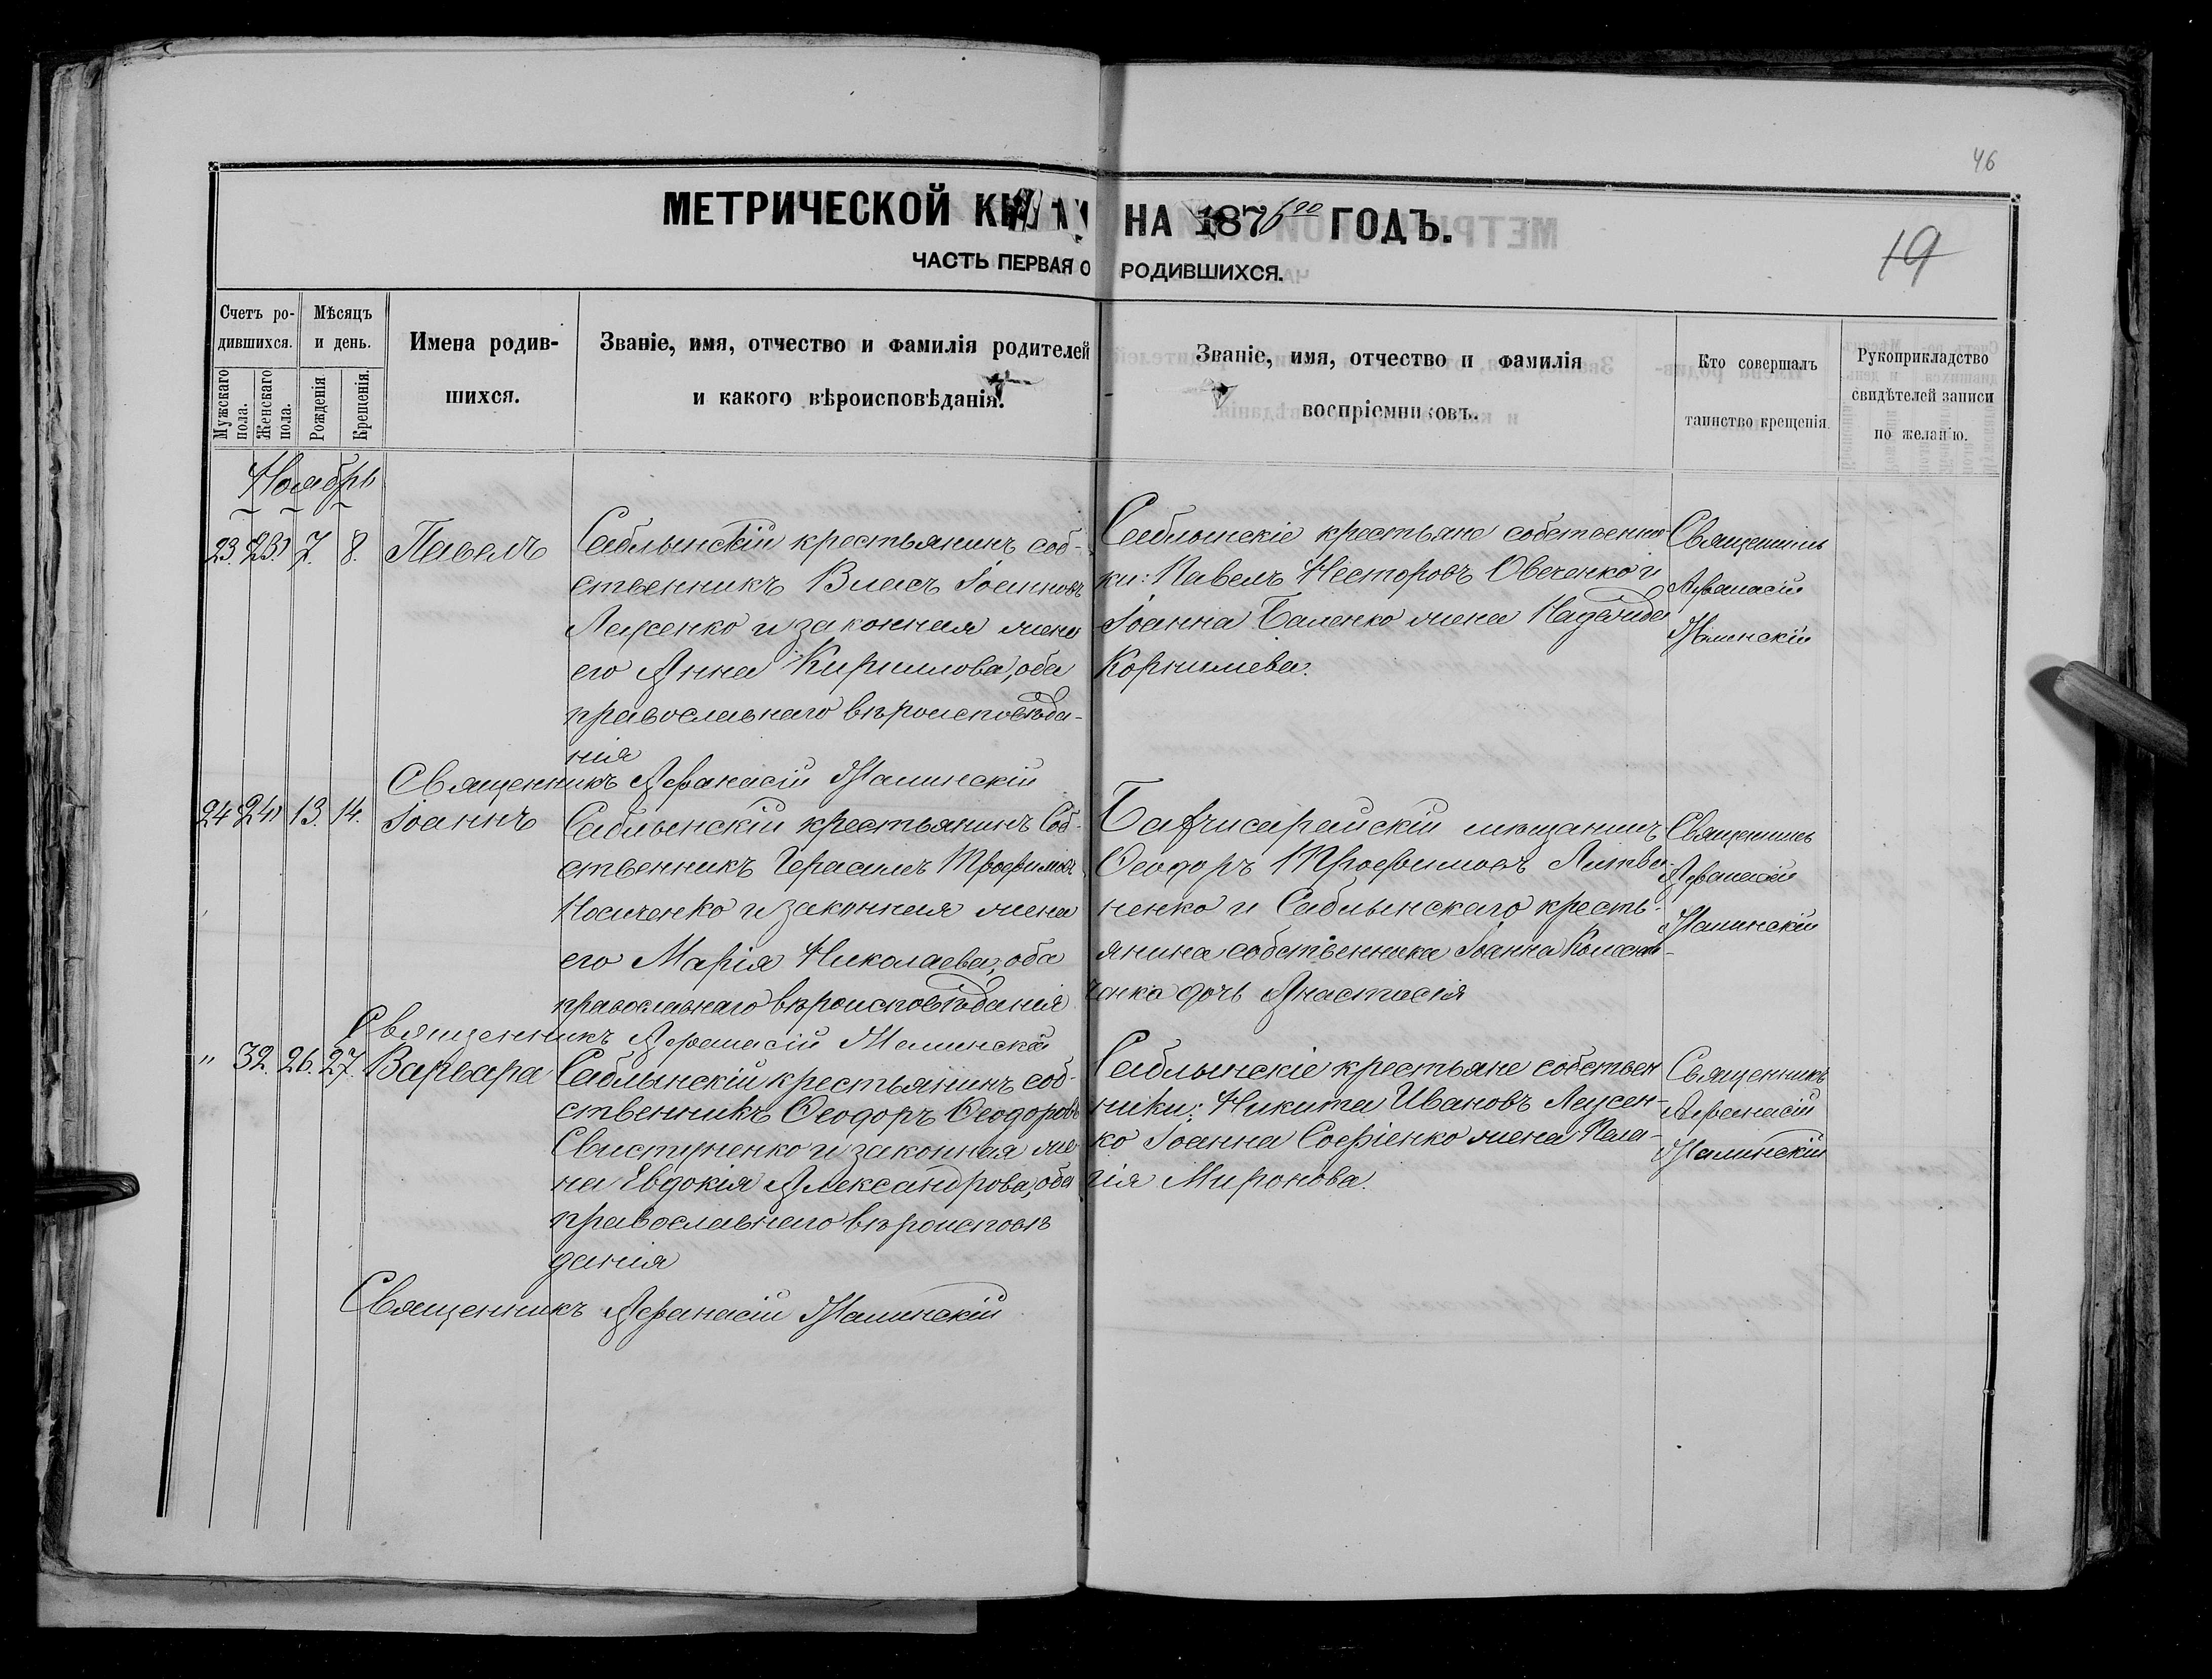 46
МЕТРИЧЕСКОЙ НА 1876го ГОДЪ.
19
ЧАСТЬ ПЕРВАЯ О РОДИВШИХСЯ.
Счетъ ро-
дившихся.
Мужскаго пола.
Женскаго пола.
Мѣсяцъ
и день.
Рожденія
Крещенія.
Имена родив-
шихся.
Званіе, имя, отчество и фамилія родителей
и какого вѣроисповѣданія.
Званіе, имя, отчество и фамилія
воспріемниковъ.
Кто совершалъ
таинство крещенія.
Рукоприкладство
свидѣтелей записи
по желанію.
Ноябрь
23. 23) 7. 8. Павелъ
Саблынскій крестьянинъ соб-
ственникъ Власъ Іоанновъ
и законная жена
его Анна Кирилова, оба
православнаго вѣроисповѣда-
нія
Саблынскіе крестьяне собственни-
ки: Павелъ Несторовъ Овеченко и
Іоанна Баленко жена Надежда
Корнилиева.
Священникъ
Афанасій
Малинскій
Священникъ Афанасій Малинскій
24 24) 13. 14. Іоаннъ
Саблынскій крестьянинъ Соб-
ственникъ Герасимъ Трофимовъ
Носиченко и законная жена
его Марія Николаева, оба
православнаго вѣроисповѣданія
Бахчисарайскій мѣщанинъ
Ѳеодоръ Трофимовъ Литви-
ненко и Саблынскаго кресть-
янина собственника Іоанна
дочь Анастасія
Священникъ
Афанасій
Малинскій
Священникъ Афанасій Малинскій
" 32. 26. 27. Варвара
Саблынскій крестьянинъ соб-
ственникъ Ѳеодоръ Ѳеодоровъ
Свистуненко и законная же-
на Евдокія Александрова, оба
православнаго вѣроисповѣ
данія
Саблынскіе крестьяне собствен
ники: Никита Ивановъ Лаусен-
ко Іоанна Софіенко жена Пела-
гія Миронова.
Священникъ
Афанасій
Малинскій
Священникъ Афанасій Малинскій